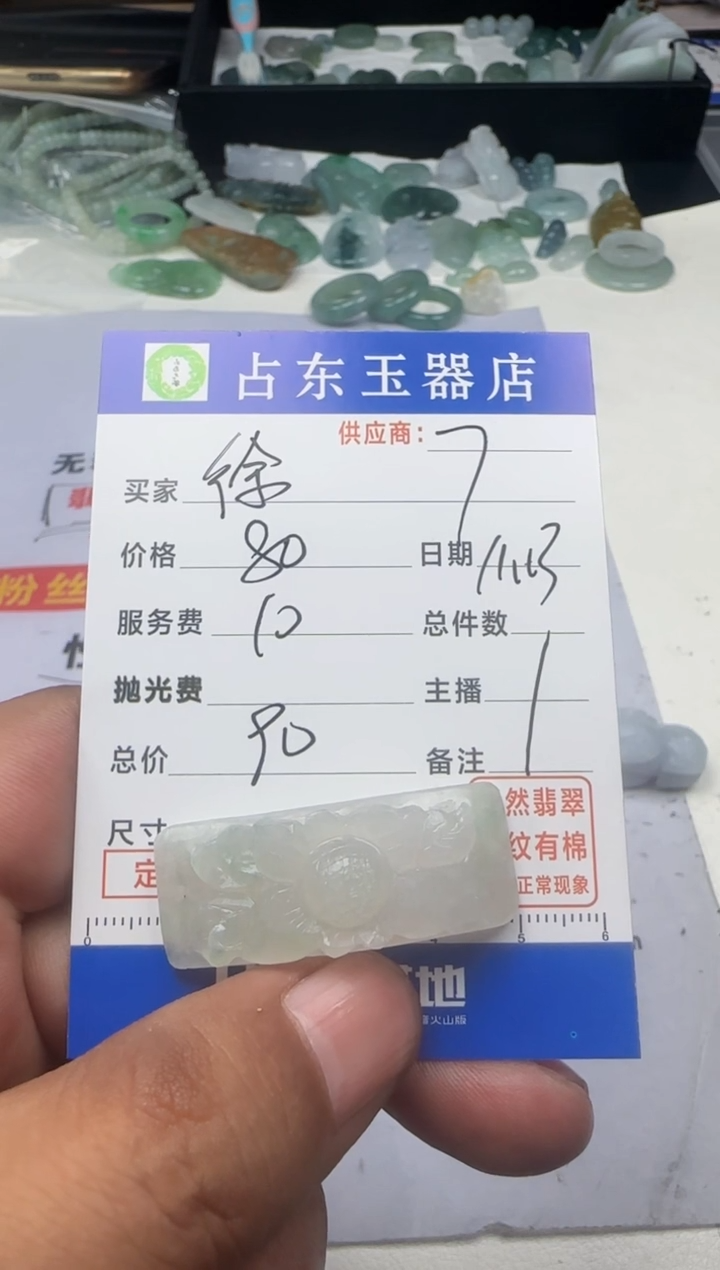 占东玉器店
供应商：7
买家 徐
价格 80 日期
服务费 10 总件数 1
抛光费 主播
总价 90 备注
尺寸
然翡翠
定 纹有棉
正常现象
0 5 6
地
火山版
粉丝